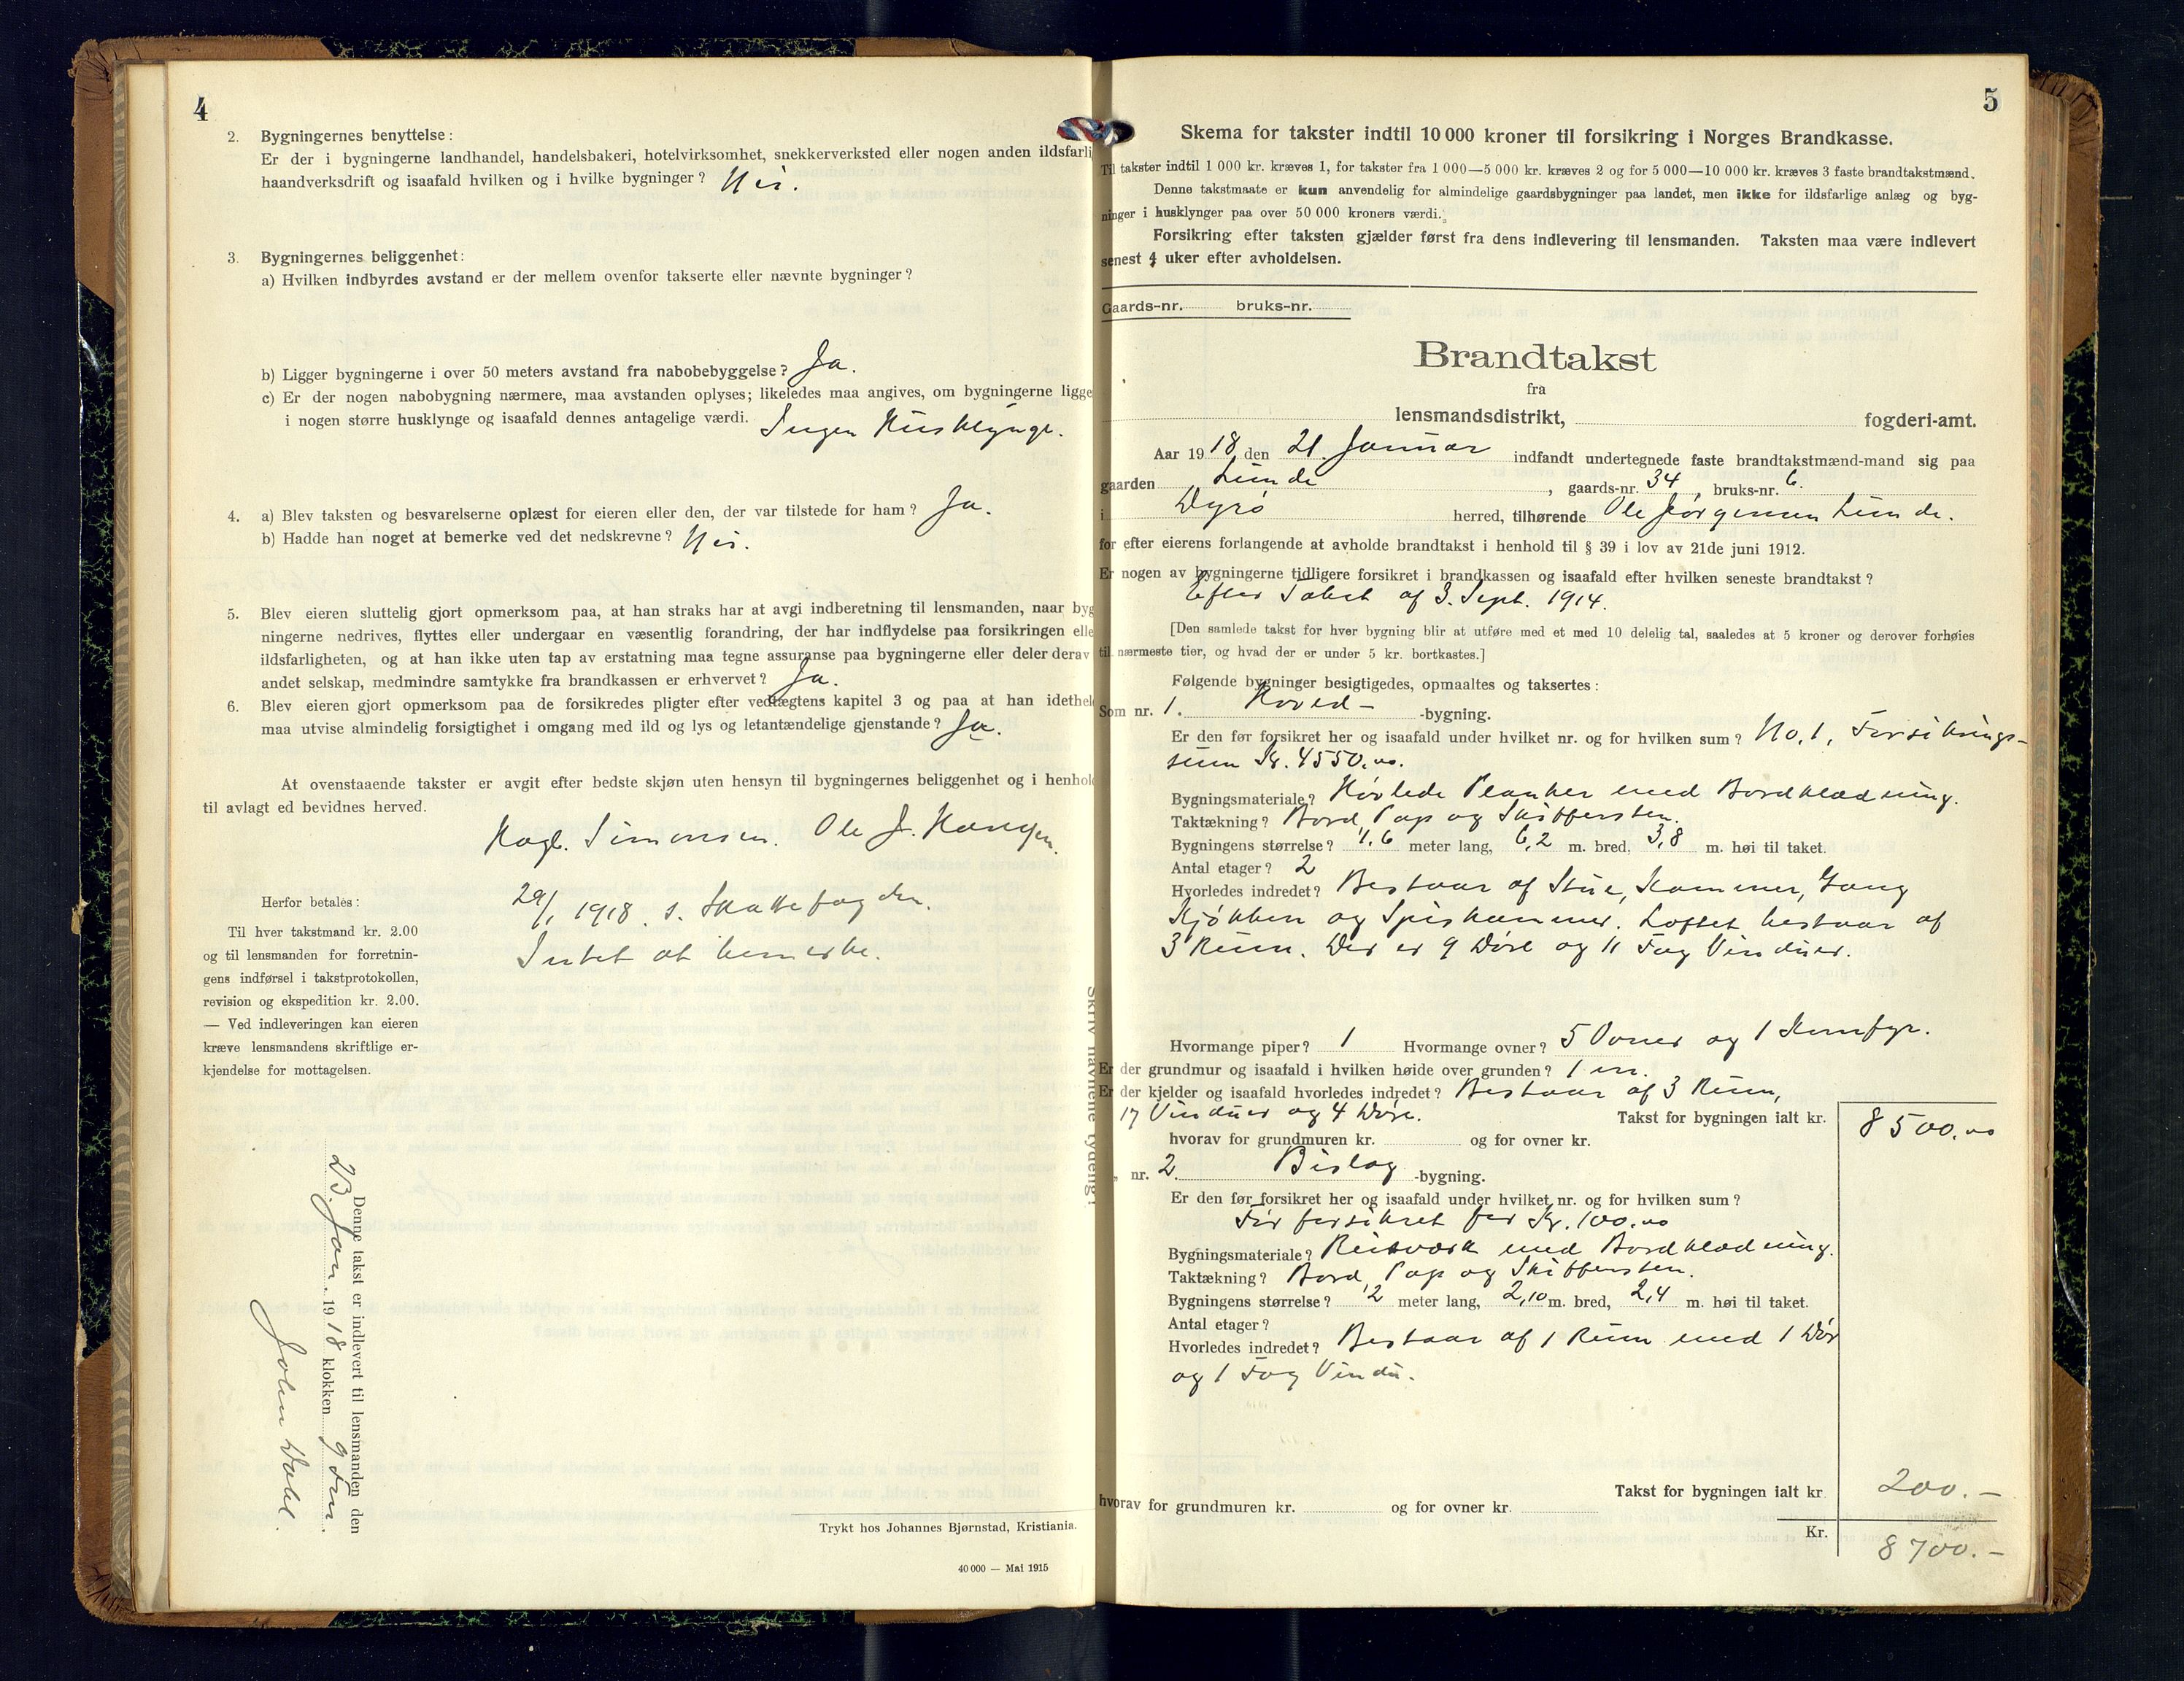 4
2. Bygningernes benyttelse:
Er der i bygningerne landhandel, handelsbakeri, hotelvirksomhet, snekkerverksted eller nogen anden ildsfarli
haandverksdrift og isaafald hvilken og i hvilke bygninger? Nei.
3. Bygningernes beliggenhet:
a) Hvilken indbyrdes avstand er der mellem ovenfor takserte eller nævnte bygninger?
b) Ligger bygningerne i over 50 meters avstand fra nabobebyggelse? Ja.
c) Er der nogen nabobygning nærmere, maa avstanden oplyses; likeledes maa angives, om bygningerne ligge
i nogen større husklynge og isaafald dennes antagelige værdi. Ingen Husklynge.
4. a) Blev taksten og besvarelserne oplæst for eieren eller den, der var tilstede for ham? Ja.
b) Hadde han noget at bemerke ved det nedskrevne? Nei.
5. Blev eieren sluttelig gjort opmerksom paa, at han straks har at avgi indberetning til lensmanden, naar byg
ningerne nedrives, flyttes eller undergaar en væsentlig forandring, der har indflydelse paa forsikringen elle
ildsfarligheten, og at han ikke uten tap av erstatning maa tegne assuranse paa bygningerne eller deler derav
andet selskap, medmindre samtykke fra brandkassen er erhvervet? Ja.
6. Blev eieren gjort opmerksom paa de forsikredes pligter efter vedtægtens kapitel 3 og paa at han idethel
maa utvise almindelig forsigtighet i omgang med ild og lys og letantændelige gjenstande? Ja.
At ovenstaaende takster er avgit efter bedste skjøn uten hensyn til bygningernes beliggenhet og i henhol
til avlagt ed bevidnes herved.
Hagb. Simonsen. Ole J. Kongen.
Herfor betales:
Til hver takstmand kr. 2.00
og til lensmanden for forretnin-
gens indførsel i takstprotokollen,
revision og ekspedition kr. 2.00.
— Ved indleveringen kan eieren
kræve lensmandens skriftlige er-
kjendelse for mottagelsen.
29/1 1918. s. Skattefogden.
Intet at bemerke.
Denne takst er indlevert til lensmanden den
23. Jan. 1918 klokken 9 Fm.
John Dahl.
Trykt hos Johannes Bjørnstad, Kristiania.
40 000 — Mai 1915
Skriv navnene tydelig!
5
Skema for takster indtil 10 000 kroner til forsikring i Norges Brandkasse.
Til takster indtil 1 000 kr. kræves 1, for takster fra 1 000—5 000 kr. kræves 2 og for 5 000—10 000 kr. kræves 3 faste brandtakstmænd.
Denne takstmaate er kun anvendelig for almindelige gaardsbygninger paa landet, men ikke for ildsfarlige anlæg og byg-
ninger i husklynger paa over 50 000 kroners værdi.
Forsikring efter taksten gjælder først fra dens indlevering til lensmanden. Taksten maa være indlevert
senest 4 uker efter avholdelsen.
Gaards-nr. bruks-nr.
Brandtakst
fra
lensmandsdistrikt, fogderi-amt.
Aar 1918, den 21. Januar indfandt undertegnede faste brandtakstmænd-mand sig paa
gaarden Lunde, gaards-nr. 34, bruks-nr. 6.
i Dyrø herred, tilhørende Ole Jørgensen Lunde.
for efter eierens forlangende at avholde brandtakst i henhold til § 39 i lov av 21de juni 1912.
Er nogen av bygningerne tidligere forsikret i brandkassen og isaafald efter hvilken seneste brandtakst?
Efter Takst af 3. Sept. 1914.
[Den samlede takst for hver bygning blir at utføre med et med 10 delelig tal, saaledes at 5 kroner og derover forhøies
til nærmeste tier, og hvad der er under 5 kr. bortkastes.]
Følgende bygninger besigtigedes, opmaaltes og taksertes:
Som nr. 1. Hoved- -bygning.
Er den før forsikret her og isaafald under hvilket nr. og for hvilken sum? No. 1, Forsikrings-
sum Kr. 4550.00.
Bygningsmateriale? Høvlede Planker med Bordklædning.
Taktækning? Bord, Pap og Skiffersten.
Bygningens størrelse? 7,6 meter lang, 6,2 m. bred, 3,8 m. høi til taket.
Antal etager? 2
Hvorledes indredet? Bestaar af Stue, Kammer, Gang
Kjøkken og Spiskammer. Loftet bestaar af
3 Rum. Der er 9 Døre og 11 Fag Vinduer.
Hvormange piper? 1 Hvormange ovner? 5 Ovner og 1 Komfyr.
Er der grundmur og isaafald i hvilken høide over grunden? 1 m.
Er der kjelder og isaafald hvorledes indredet? Bestaar af 3 Rum,
17 Vinduer og 4 Døre. Takst for bygningen ialt kr. 8500.00
hvorav for grundmuren kr. og for ovner kr.
" nr. 2. Bislag -bygning.
Er den før forsikret her og isaafald under hvilket nr. og for hvilken sum?
Før forsikret for Kr. 100.00
Bygningsmateriale? Reisværk med Bordklædning.
Taktækning? Bord, Pap og Skiffersten.
Bygningens størrelse? 2 meter lang, 2,10 m. bred, 2,4 m. høi til taket.
Antal etager?
Hvorledes indredet? Bestaar af 1 Rum med 1 Dør
og 1 Fag Vindu.
Takst for bygningen ialt kr 200.—
hvorav for grundmuren kr. og for ovner kr.
Kr. 8700.—